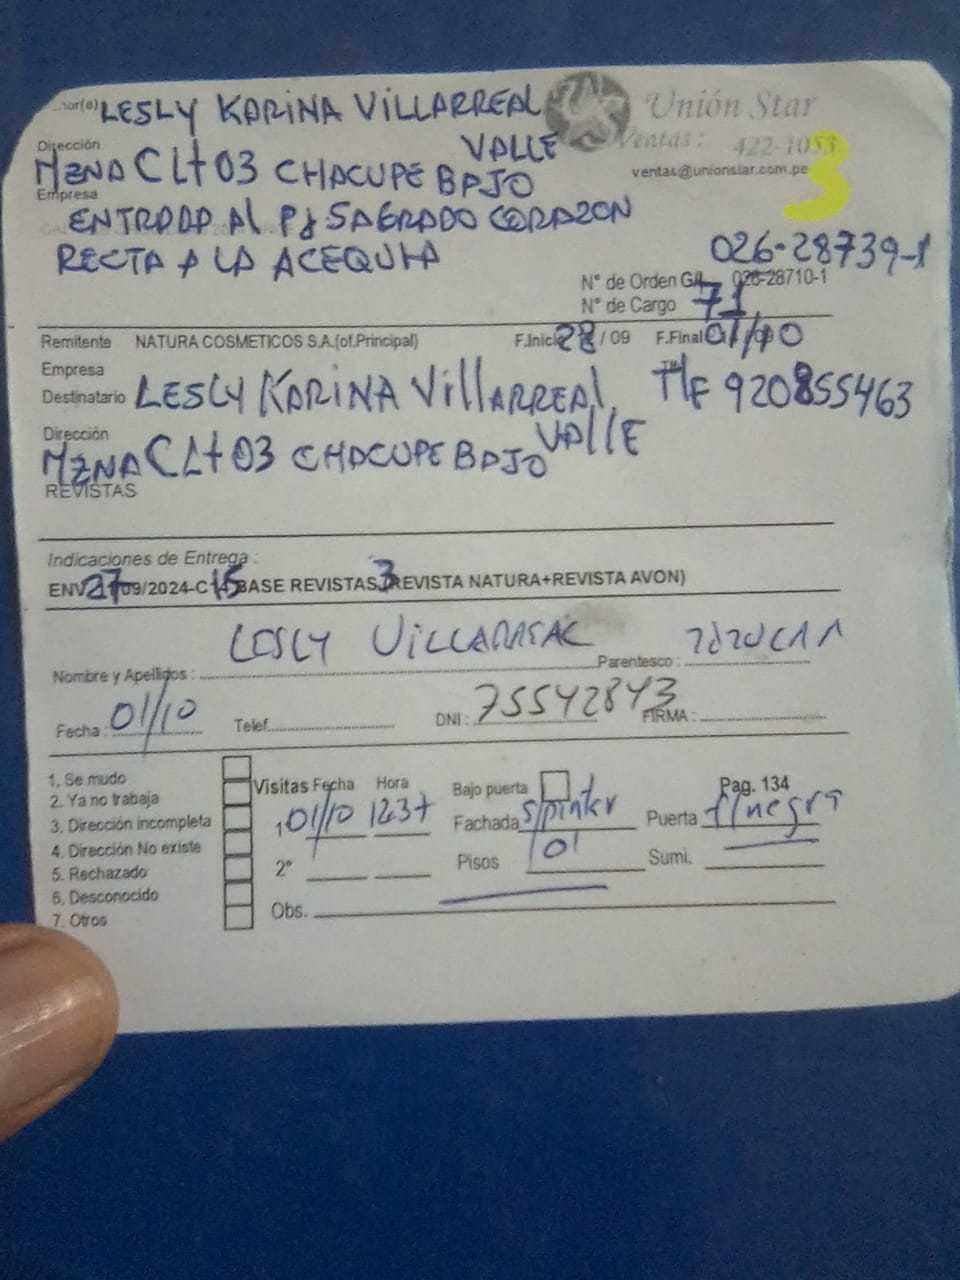 ...nor(a) LESLY KARINA VILLARREAL
VALLE
Unión Star
Ventas: 422-1053
ventas@unionstar.com.pe
3
Dirección
MZNA C Lt 03 CHACUPE BAJO
Empresa
ENTRADA Al PJ SAGRADO CORAZON
RECTA A LA ACEQUIA
026-28739-1
N° de Orden GA 026-28710-1
N° de Cargo 71
Remitente NATURA COSMETICOS S.A.(of.Principal) F.Inicio 28 / 09 F.Final 01/10
Empresa
Destinatario LESLY KARINA VillARREAL TlF 920855463
VAllE
Dirección
MZNA C Lt 03 CHACUPE BAJO
REVISTAS
Indicaciones de Entrega :
ENV 27/09/2024-C 15 BASE REVISTAS 3 REVISTA NATURA+REVISTA AVON)
Nombre y Apellidos : LESLY VILLARREAL Parentesco :
Fecha : 01/10 Telef. DNI : 75542843 FIRMA :
1. Se mudo
2. Ya no trabaja
3. Dirección incompleta
4. Dirección No existe
5. Rechazado
6. Desconocido
7. Otros
Visitas Fecha Hora Bajo puerta Pag. 134
1 01/10 1237 Fachada s/pintar Puerta f/negra
2° Pisos 01 Sumi.
Obs.